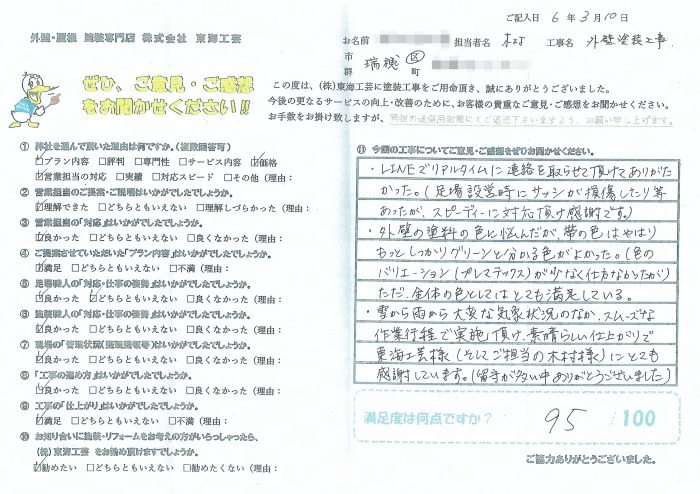 ご記入日 6年3月10日
外壁・屋根 塗装専門店 株式会社 東海工芸
お名前 担当者名 木村 工事名 外壁塗装工事
市 瑞穂 区
郡 町
ぜひ、ご意見・ご感想
をお聞かせください!!
この度は、(株)東海工芸に塗装工事をご用命頂き、誠にありがとうございました。
今後の更なるサービスの向上・改善のために、お客様の貴重なご意見・ご感想をお聞かせください。
お手数をお掛け致しますが、同封の返信用封筒にてご返送下さいますよう、お願い申し上げます。
① 弊社を選んで頂いた理由は何ですか。(複数回答可)
☑プラン内容 □評判 □専門性 □サービス内容 ☑価格
☑営業担当の対応 □実績 □対応スピード □その他(理由:
② 営業担当のご提案・ご説明はいかがでしたでしょうか。
☑理解できた □どちらともいえない □理解しづらかった(理由:
③ 営業担当の「対応」はいかがでしたでしょうか。
☑良かった □どちらともいえない □良くなかった(理由:
④ ご提案させていただいた「プラン内容」はいかがでしたでしょうか。
☑満足 □どちらともいえない □不満(理由:
⑤ 足場職人の「対応・仕事の姿勢」はいかがでしたでしょうか。
□良かった ☑どちらともいえない □良くなかった(理由:
⑥ 塗装職人の「対応・仕事の姿勢」はいかがでしたでしょうか。
☑良かった □どちらともいえない □良くなかった(理由:
⑦ 現場の「管理状況(整理整頓等)」はいかがでしたでしょうか。
☑良かった □どちらともいえない □良くなかった(理由:
⑧ 「工事の進め方」はいかがでしたでしょうか。
☑良かった □どちらともいえない □良くなかった(理由:
⑨ 工事の「仕上がり」はいかがでしたでしょうか。
☑良かった □どちらともいえない □良くなかった(理由:
⑩ お知り合いに塗装・リフォームをお考えの方がいらっしゃったら、
(株)東海工芸 をお勧め頂けますでしょうか。
☑勧めたい □どちらともいえない □勧めたくない(理由:
⑪ 今回の工事についてご意見・ご感想をぜひお聞かせください。
・LINEでリアルタイムに連絡を取らせて頂けてありがた
かった。(足場設営時にサッシが損傷したり等
あったが、スピーディーに対応頂け感謝です。)
・外壁の塗料の色に悩んだが、帯の色はやはり
もっとしっかりグリーンと分かる色がよかった。(色の
バリエーション(プレマテックス)が少なく仕方なかったが)
ただ、全体の色としてはとても満足している。
・雪から雨から大変な気象状況のなか、スムーズな
作業行程で実施頂け、素晴らしい仕上がりで
東海工芸様(そしてご担当の木村様)にとても
感謝しています。(留守が多い中ありがとうございました)
満足度は何点ですか? 95 /100
ご協力ありがとうございました。